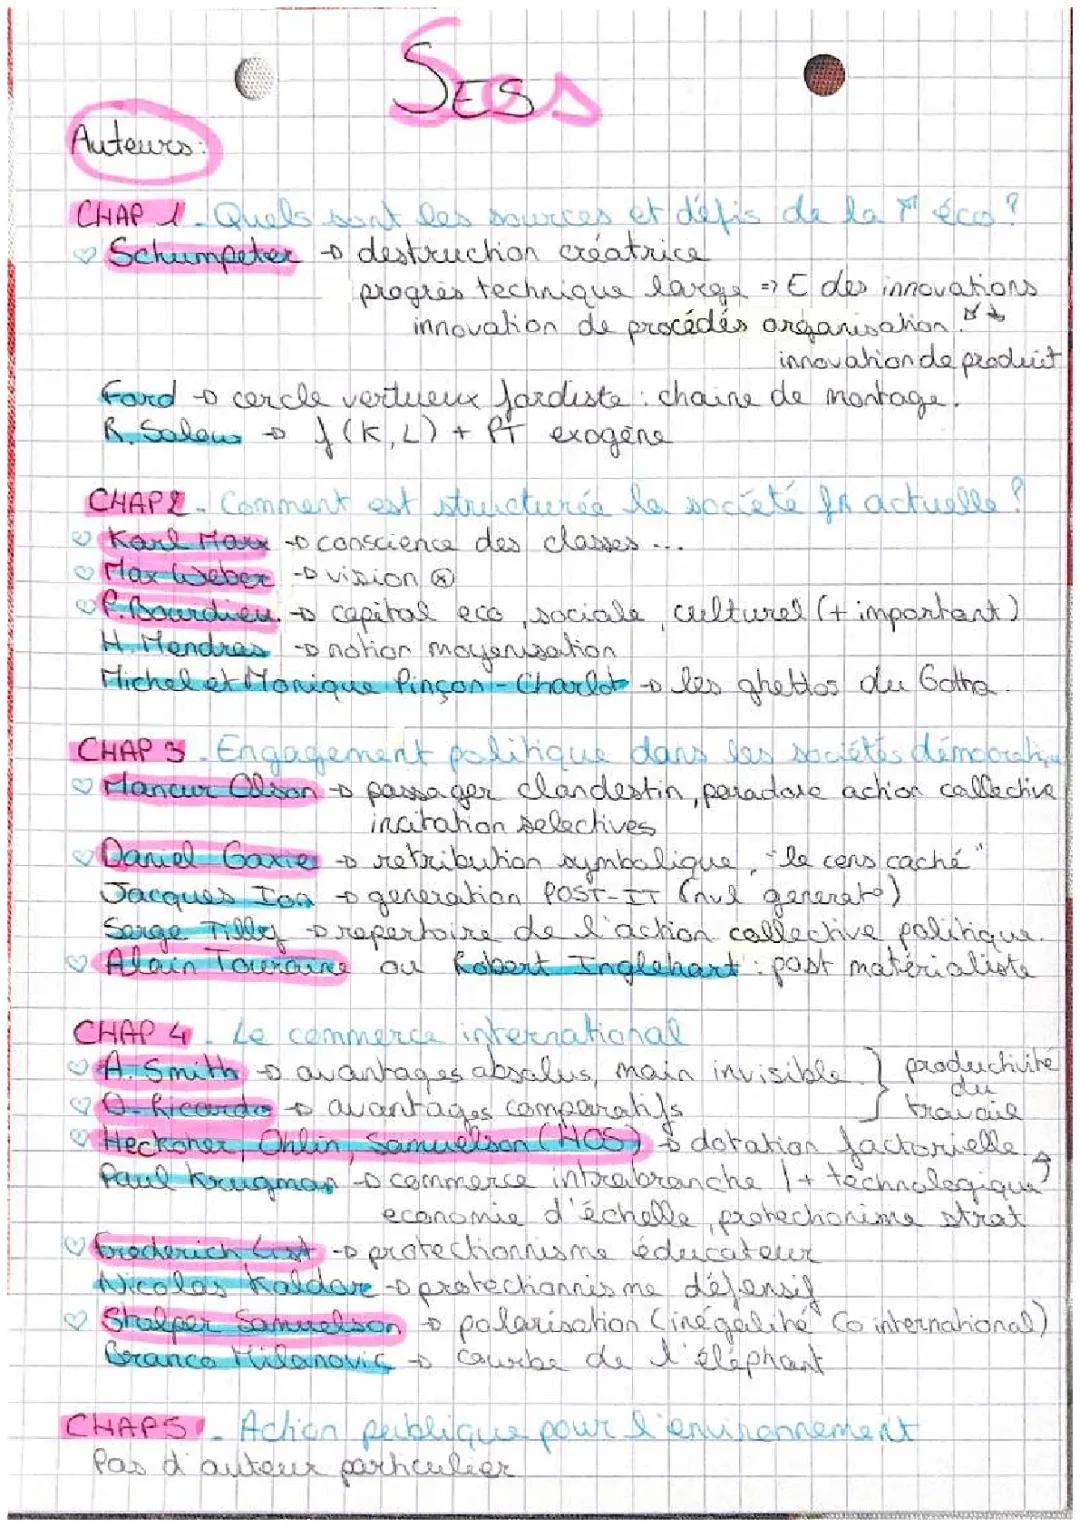 SES
Auteurs:
CHAP 1 - Quels sont les sources et défis de la éco ?
♡ Schumpeter → destruction créatrice
progrès technique large => E des innovations
innovation de procédés organisation.
innovation de produit
Ford → cercle vertueux fordiste : chaine de montage.
R. Solow → f (K, L) + PT exogène
CHAP 2 - Comment est structurée la société fr actuelle ?
♡ Karl Marx → conscience des classes ...
♡ Max Weber → vision
♡ P. Bourdieu → capital eco, sociale, culturel (+ important)
H. Mendras → notion moyenisation
Michel et Monique Pinçon-Charlot → les ghettos du Gotha.
CHAP 3 - Engagement politique dans les sociétés démocratique
♡ Mancur Olson → passager clandestin, paradoxe action collective
incitation selectives
♡ Daniel Gaxie → retribution symbolique, "le cens caché"
Jacques Ion → generation POST-IT
Serge Tilly → repertoire de l'action collective politique.
♡ Alain Touraine ou Robert Inglehart : post matérialiste
CHAP 4 - Le commerce international
♡ A. Smith → avantages absolus, main invisible. } productivité du travail
♡ D. Ricardo → avantages comparatifs
♡ Heckoher, Ohlin, Samuelson (HOS) → dotation factorielle
Paul Krugman → commerce intrabranche / + technologique
economie d'échelle, protectionisme strat
♡ Frederich List → protectionnisme éducateur
Nicolas Kaldor → protectionnisme défensif
♡ Stolper Samuelson → polarisation (inégalité Co international)
Branco Milanovic → courbe de l'éléphant
CHAP 5 - Action publique pour l'environnement
Pas d'auteur particulier